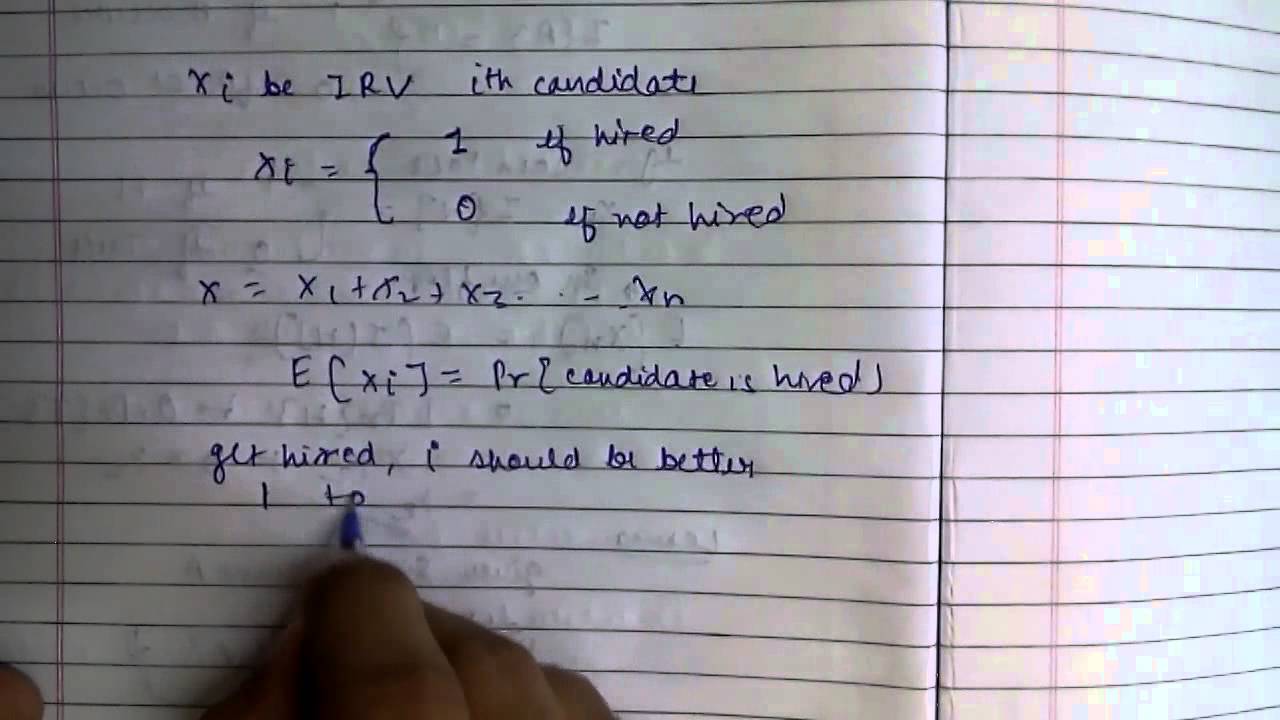 xi be IRV ith candidate
xi = { 1 if hired
0 if not hired
x = x1 + x2 + x3 . . - xn
E[xi] = Pr[candidate is hired]
get hired, i should be better
1 to